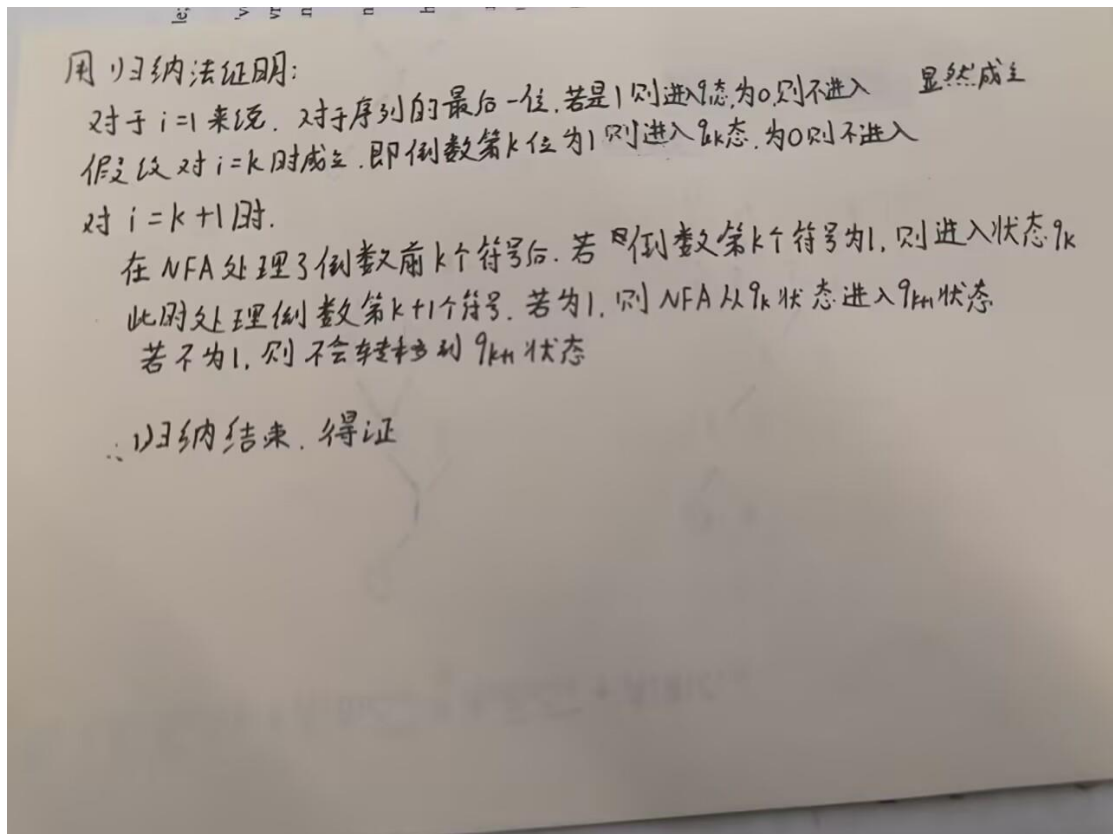 用归纳法证明:
对于i=1来说.对于序列的最后一位.若是1则进入q态,为0,则不进入 显然成立
假设对i=k时成立.即倒数第k位为1则进入qk态.为0则不进入
对i=k+1时.
在NFA处理了倒数前k个符号后.若倒数第k个符号为1.则进入状态qk
此时处理倒数第k+1个符号.若为1.则NFA从qk状态进入qk+1状态
若不为1.则不会转移到qk+1状态
∴归纳结束.得证